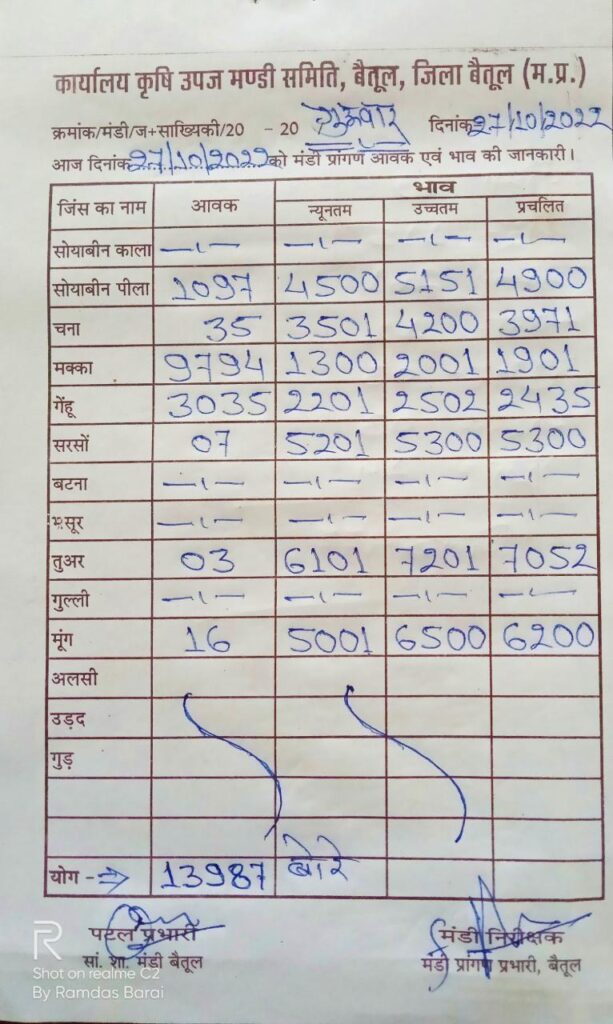 कार्यालय कृषि उपज मण्डी समिति, बैतूल, जिला बैतूल (म.प्र.)
क्रमांक/मंडी/ज+साख्यिकी/20 - 20 गुरूवार दिनांक 27/10/2022
आज दिनांक 27/10/2022 को मंडी प्रांगण आवक एवं भाव की जानकारी।
जिंस का नाम आवक भाव
न्यूनतम उच्चतम प्रचलित
सोयाबीन काला —।— —।— —।— —।—
सोयाबीन पीला 1097 4500 5151 4900
चना 35 3501 4200 3971
मक्का 9794 1300 2001 1901
गेंहू 3035 2201 2502 2435
सरसों 07 5201 5300 5300
बटना —।— —।— —।— —।—
मसूर —।— —।— —।— —।—
तुअर 03 6101 7201 7052
गुल्ली —।— —।— —।— —।—
मूंग 16 5001 6500 6200
अलसी
उड़द
गुड़
योग -⇒ 13987 बोरे
पटल प्रभारी मंडी निरीक्षक
सां. शा. मंडी बैतूल मंडी प्रांगण प्रभारी, बैतूल
R
Shot on realme C2
By Ramdas Barai